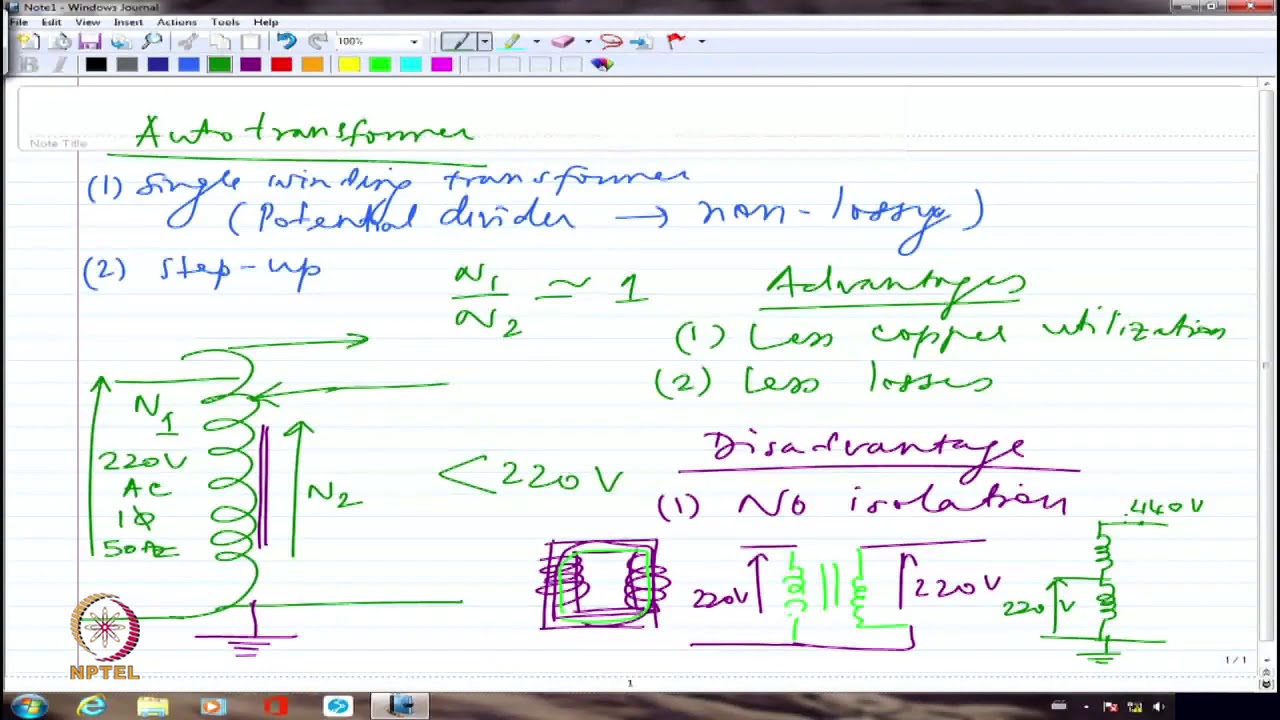 Note1 - Windows Journal
File Edit View Insert Actions Tools Help
100%
B I
Autotransformer
Note Title
(1) Single winding transformer
(Potential divider → non-lossy)
(2) Step-up
N1/N2 ≃ 1
Advantages
(1) Less copper utilization
(2) Less losses
N1
220V
AC
1Φ
50Hz
N2
<220V
Disadvantage
(1) No isolation
220V
220V
440V
220V
NPTEL
1/1
1